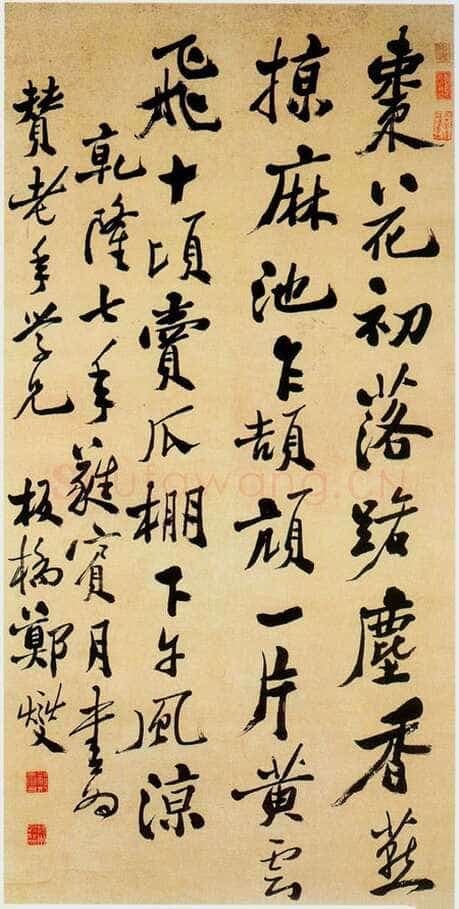 棗花初落路塵香燕
掠麻池乍頡頏一片黄雲
飛十頃賣瓜棚下午風涼
乾隆七年蕤賓月書為
贊老年学兄 板橋鄭燮
Shufawang.CN